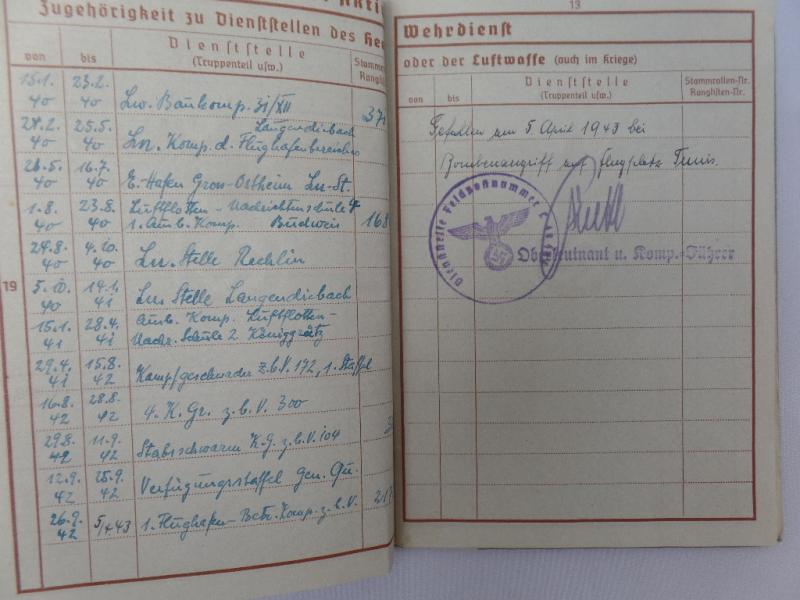 Zugehörigkeit zu Dienststellen des Hee
von bis Dienststelle (Truppenteil usw.) Stammr Ranglist
15.1. 40 23.2. 40 Ln. Baukomp. 31/XII 371
24.2. 40 25.5. 40 Ln. Komp. d. Flughafenbereiches Langendiebach
26.5. 40 16.7. 40 E-Hafen Gross-Ostheim Ln-St.
1.8. 40 23.8. 40 Luftflotten-Nachrichtenschule 4
1. Ausb. Komp. Budweis 168
24.8. 40 4.10. 40 Ln. Stelle Rechlin
19
5.10. 40 14.1. 41 Ln. Stelle Langendiebach
15.1. 41 28.4. 41 Ausb. Komp. Luftflotten-
Nachr. Schule 2 Königgrätz
29.4. 41 15.8. 42 Kampfgeschwader z.b.V. 172, 1. Staffel
16.8. 42 28.8. 42 4. K. Gr. z.b.V. 300
29.8. 42 11.9. 42 Stabsschwarm K.G. z.b.V. 104
12.9. 42 25.9. 42 Verfügungsstaffel Gen. Qu.
26.9. 42 5/4.43 1. Flughafen-Betr. Komp. z.b.V.
13
Wehrdienst
oder der Luftwaffe (auch im Kriege)
von bis Dienststelle (Truppenteil usw.) Stammrollen-Nr. Ranglisten-Nr.
Gefallen am 5. April 1943 bei
Bombenangriff auf Flugplatz Tunis.
Dienststelle Feldpostnummer
Oberleutnant u. Komp.-Führer